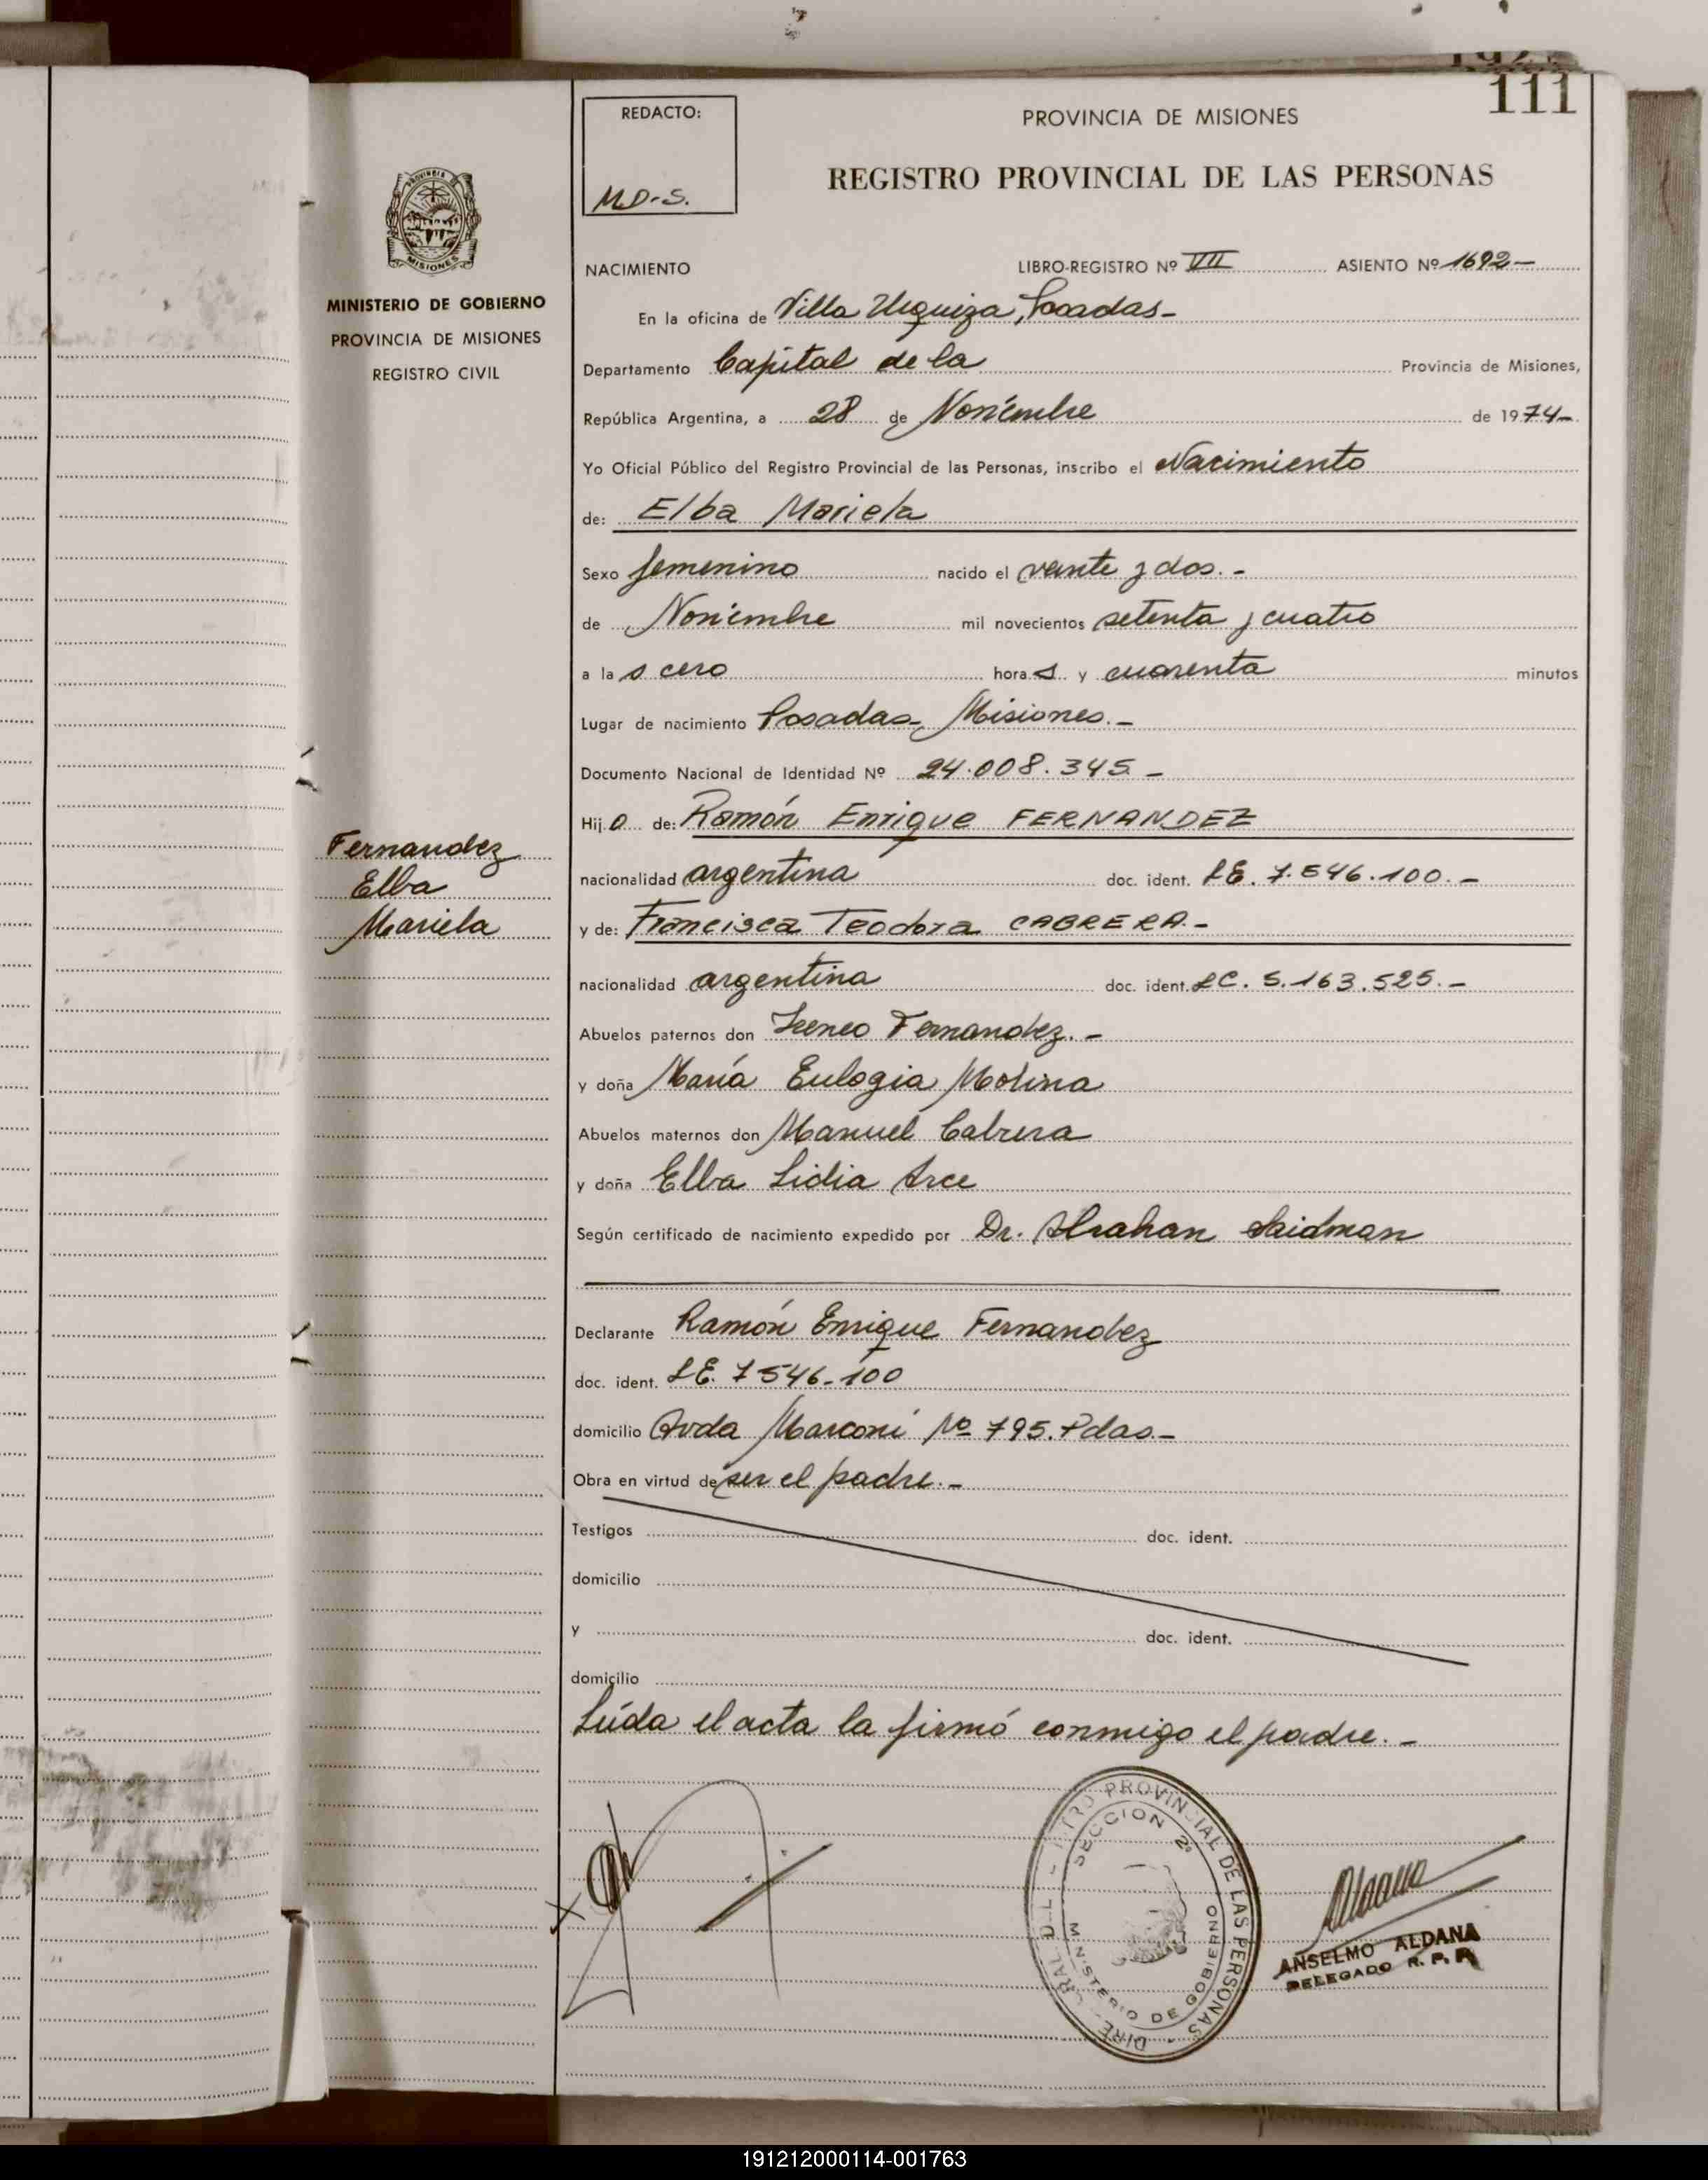 111
REDACTO:
M.D-S.
PROVINCIA DE MISIONES
REGISTRO PROVINCIAL DE LAS PERSONAS
PROVINCIA DE
MISIONES
MINISTERIO DE GOBIERNO
PROVINCIA DE MISIONES
REGISTRO CIVIL
NACIMIENTO LIBRO-REGISTRO Nº VII ASIENTO Nº 1692—
En la oficina de Villa Urquiza, Posadas-
Departamento Capital de la Provincia de Misiones,
República Argentina, a 28 de Noviembre de 1974-
Yo Oficial Público del Registro Provincial de las Personas, inscribo el Nacimiento
de: Elba Mariela
Sexo femenino nacido el veinte y dos.-
de Noviembre mil novecientos setenta y cuatro
a la s cero hora s y cuarenta minutos
Lugar de nacimiento Posadas- Misiones.-
Documento Nacional de Identidad Nº 24.008.345-
Hij a de: Ramón Enrique FERNANDEZ
nacionalidad argentina doc. ident. LE. 7.546.100.-
y de: Francisca Teodora CABRERA.-
nacionalidad argentina doc. ident. LC. 5.163.525.-
Fernandez
Elba
Mariela
Abuelos paternos don Ireneo Fernandez.-
y doña María Eulogia Molina
Abuelos maternos don Manuel Cabrera
y doña Elba Lidia Arce
Según certificado de nacimiento expedido por Dr. Abrahan Saidman
Declarante Ramón Enrique Fernandez
doc. ident. LE. 7546-100
domicilio Avda Marconi Nº 795. Pdas.-
Obra en virtud de ser el padre.-
Testigos doc. ident.
domicilio
y doc. ident.
domicilio
Leída el acta la firmó conmigo el padre.-
PROVINCIAL DE LAS PERSONAS
SECCION 2ª
MINISTERIO DE GOBIERNO
Aldana
ANSELMO ALDANA
DELEGADO R. P. P.
191212000114-001763